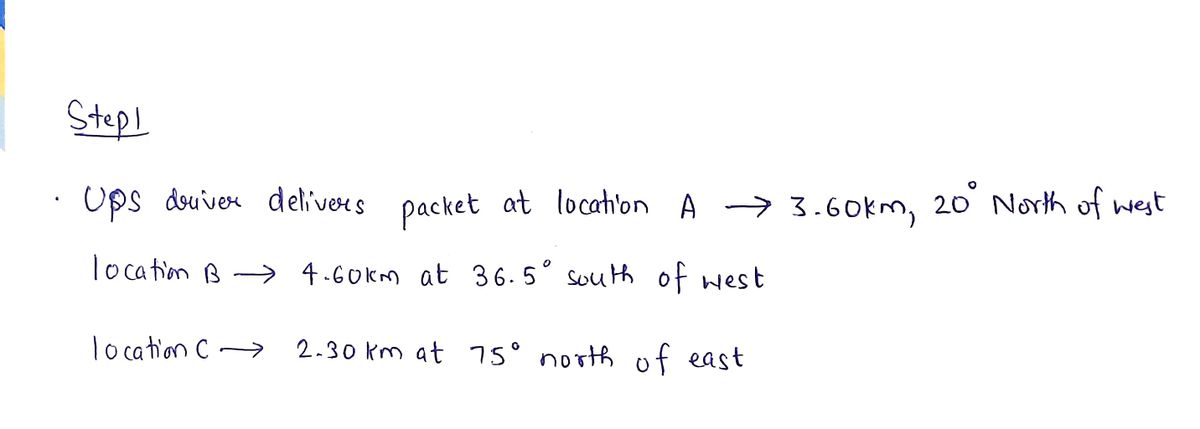 Step1
· UPS driver delivers packet at location A → 3.60km, 20° North of west
location B → 4.60km at 36.5° south of west
location C → 2.30 km at 75° north of east